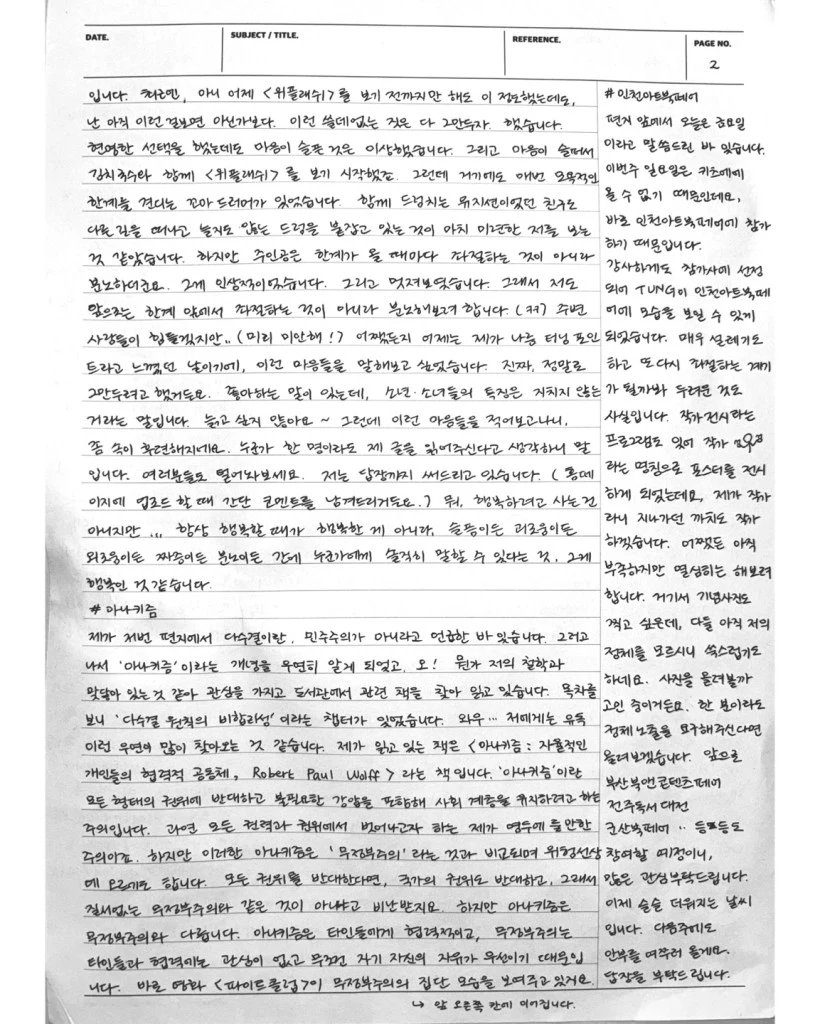 DATE.
SUBJECT / TITLE.
REFERENCE.
PAGE NO.
2
입니다. 최근엔, 아니 어제 <위플래쉬>를 보기 전까지만 해도 이 정도했는데도,
난 아직 이런 걸보면 아닌가보다. 이런 쓸데없는 짓은 다 그만두자. 했습니다.
현명한 선택을 했는데도 마음이 슬픈 것은 이상했습니다. 그리고 마음이 슬퍼서
김치국수와 함께 <위플래쉬>를 보기 시작했죠. 그런데 거기에도 매번 모욕적인
한계들을 견디는 꼬마 드러머가 있었습니다. 함께 드럼치는 뮤지션이었던 친구도
다른 길을 떠나고 늘지도 않는 드럼을 붙잡고 있는 것이 마치 미련한 저를 보는
것 같았습니다. 하지만 주인공은 한계가 올 때마다 좌절하는 것이 아니라
분노하더군요. 그게 인상적이었습니다. 그리고 멋져보였습니다. 그래서 저도
앞으로는 한계 앞에서 좌절하는 것이 아니라 분노해보려 합니다. (ㅋㅋ) 주변
사람들이 힘들겠지만.. (미리 미안해!) 어쨌든지 어제는 제가 나름 터닝 포인
트라고 느꼈던 날이기에, 이런 마음들을 말해보고 싶었습니다. 진짜, 정말로
그만두려고 했거든요. 좋아하는 말이 있는데, 소년·소녀들의 특징은 지치지 않는
거라는 말입니다. 늙고 싶지 않아요~ 그런데 이런 마음들을 적어보고나니,
쫌 속이 후련해지네요. 누군가 한 명이라도 제 글을 읽어주신다고 생각하니 말
입니다. 여러분들도 털어놔보세요. 저는 답장까지 써드리고 있습니다. (홈페
이지에 업로드 할 때 간단 코멘트를 남겨드리거든요.) 뭐, 행복하려고 사는 건
아니지만... 항상 행복할 때가 행복한 게 아니라, 슬픔이든 괴로움이든
외로움이든 짜증이든 분노이든 간에 누군가에게 솔직히 말할 수 있다는 것, 그게
행복인 것 같습니다.
# 아나키즘
제가 저번 편지에서 다수결이란, 민주주의가 아니라고 언급한 바 있습니다. 그러고
나서 '아나키즘'이라는 개념을 우연히 알게 되었고, 오! 뭔가 저의 철학과
맞닿아 있는 것 같아 관심을 가지고 도서관에서 관련 책을 찾아 읽고 있습니다. 목차를
보니 '다수결 원칙의 비합리성'이라는 챕터가 있었습니다. 와우... 저에게는 유독
이런 우연이 많이 찾아오는 것 같습니다. 제가 읽고 있는 책은 <아나키즘: 자율적인
개인들의 협력적 공동체, Robert Paul Wolff> 라는 책입니다. '아나키즘'이란
모든 형태의 권위에 반대하고 불필요한 강압을 포함해 사회 계층을 유지하려고 하는
주의입니다. 과연 모든 권력과 권위에서 벗어나고자 하는 제가 염두에 둘만한
주의이죠. 하지만 이러한 아나키즘은 '무정부주의'라는 것과 비교되며 위험선상
에 오르기도 합니다. 모든 권위를 반대한다면, 국가의 권위도 반대하고, 그래서
질서없는 무정부주의와 같은 것이 아니냐고 비난받지요. 하지만 아나키즘은
무정부주의와 다릅니다. 아나키즘은 타인들에게 협력적이고, 무정부주의는
타인들과 협력에는 관심이 없고 무조건 자기 자신의 자유가 우선이기 때문입
니다. 바로 영화 <파이트클럽>이 무정부주의의 집단 모습을 보여주고 있거요.
↳ 맨 오른쪽 칸에 이어집니다.
# 인천아트북페어
편지 앞에서 오늘은 금요일
이라고 말씀드린 바 있습니다.
이번주 일요일은 키즈에에
올 수 없기 때문인데요,
바로 인천아트북페어에 참가
하기 때문입니다.
감사하게도 참가사에 선정
되어 TUNG이 인천아트북페
어에 모습을 보일 수 있게
되었습니다. 매우 설레기도
하고 또 다시 좌절하는 계기
가 될까봐 두려운 것도
사실입니다. 작가전시라는
프로그램도 있어 작가
라는 명칭으로 포스터를 전시
하게 되었는데요, 제가 작가
라니 지나가던 까치도 작가
하겠습니다. 어쨌든 아직
부족하지만 열심히는 해보려
합니다. 거기서 기념사진도
찍고 싶은데, 다들 아직 저의
정체를 모르시니 쑥스럽기도
하네요. 사진을 올려볼까
고민 중이거든요. 한 분이라도
정체 노출을 요구해주신다면
올려보겠습니다. 앞으로
부산북앤콘텐츠페어
전주독서대전
군산북페어.. 등등등도
참여할 예정이니,
많은 관심부탁드립니다.
이제 슬슬 더워지는 날씨
입니다. 다음주에도
안부를 여쭈러 올게요.
답장을 부탁드립니다.